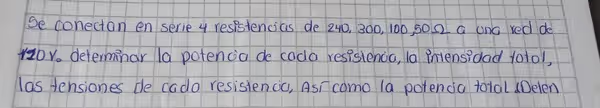 Se conectan en serie 4 resistencias de 240, 300, 100, 50Ω a una red de
120 V. determinar la potencia de cada resistencia, la intensidad total,
las tensiones de cada resistencia, Así como la potencia total